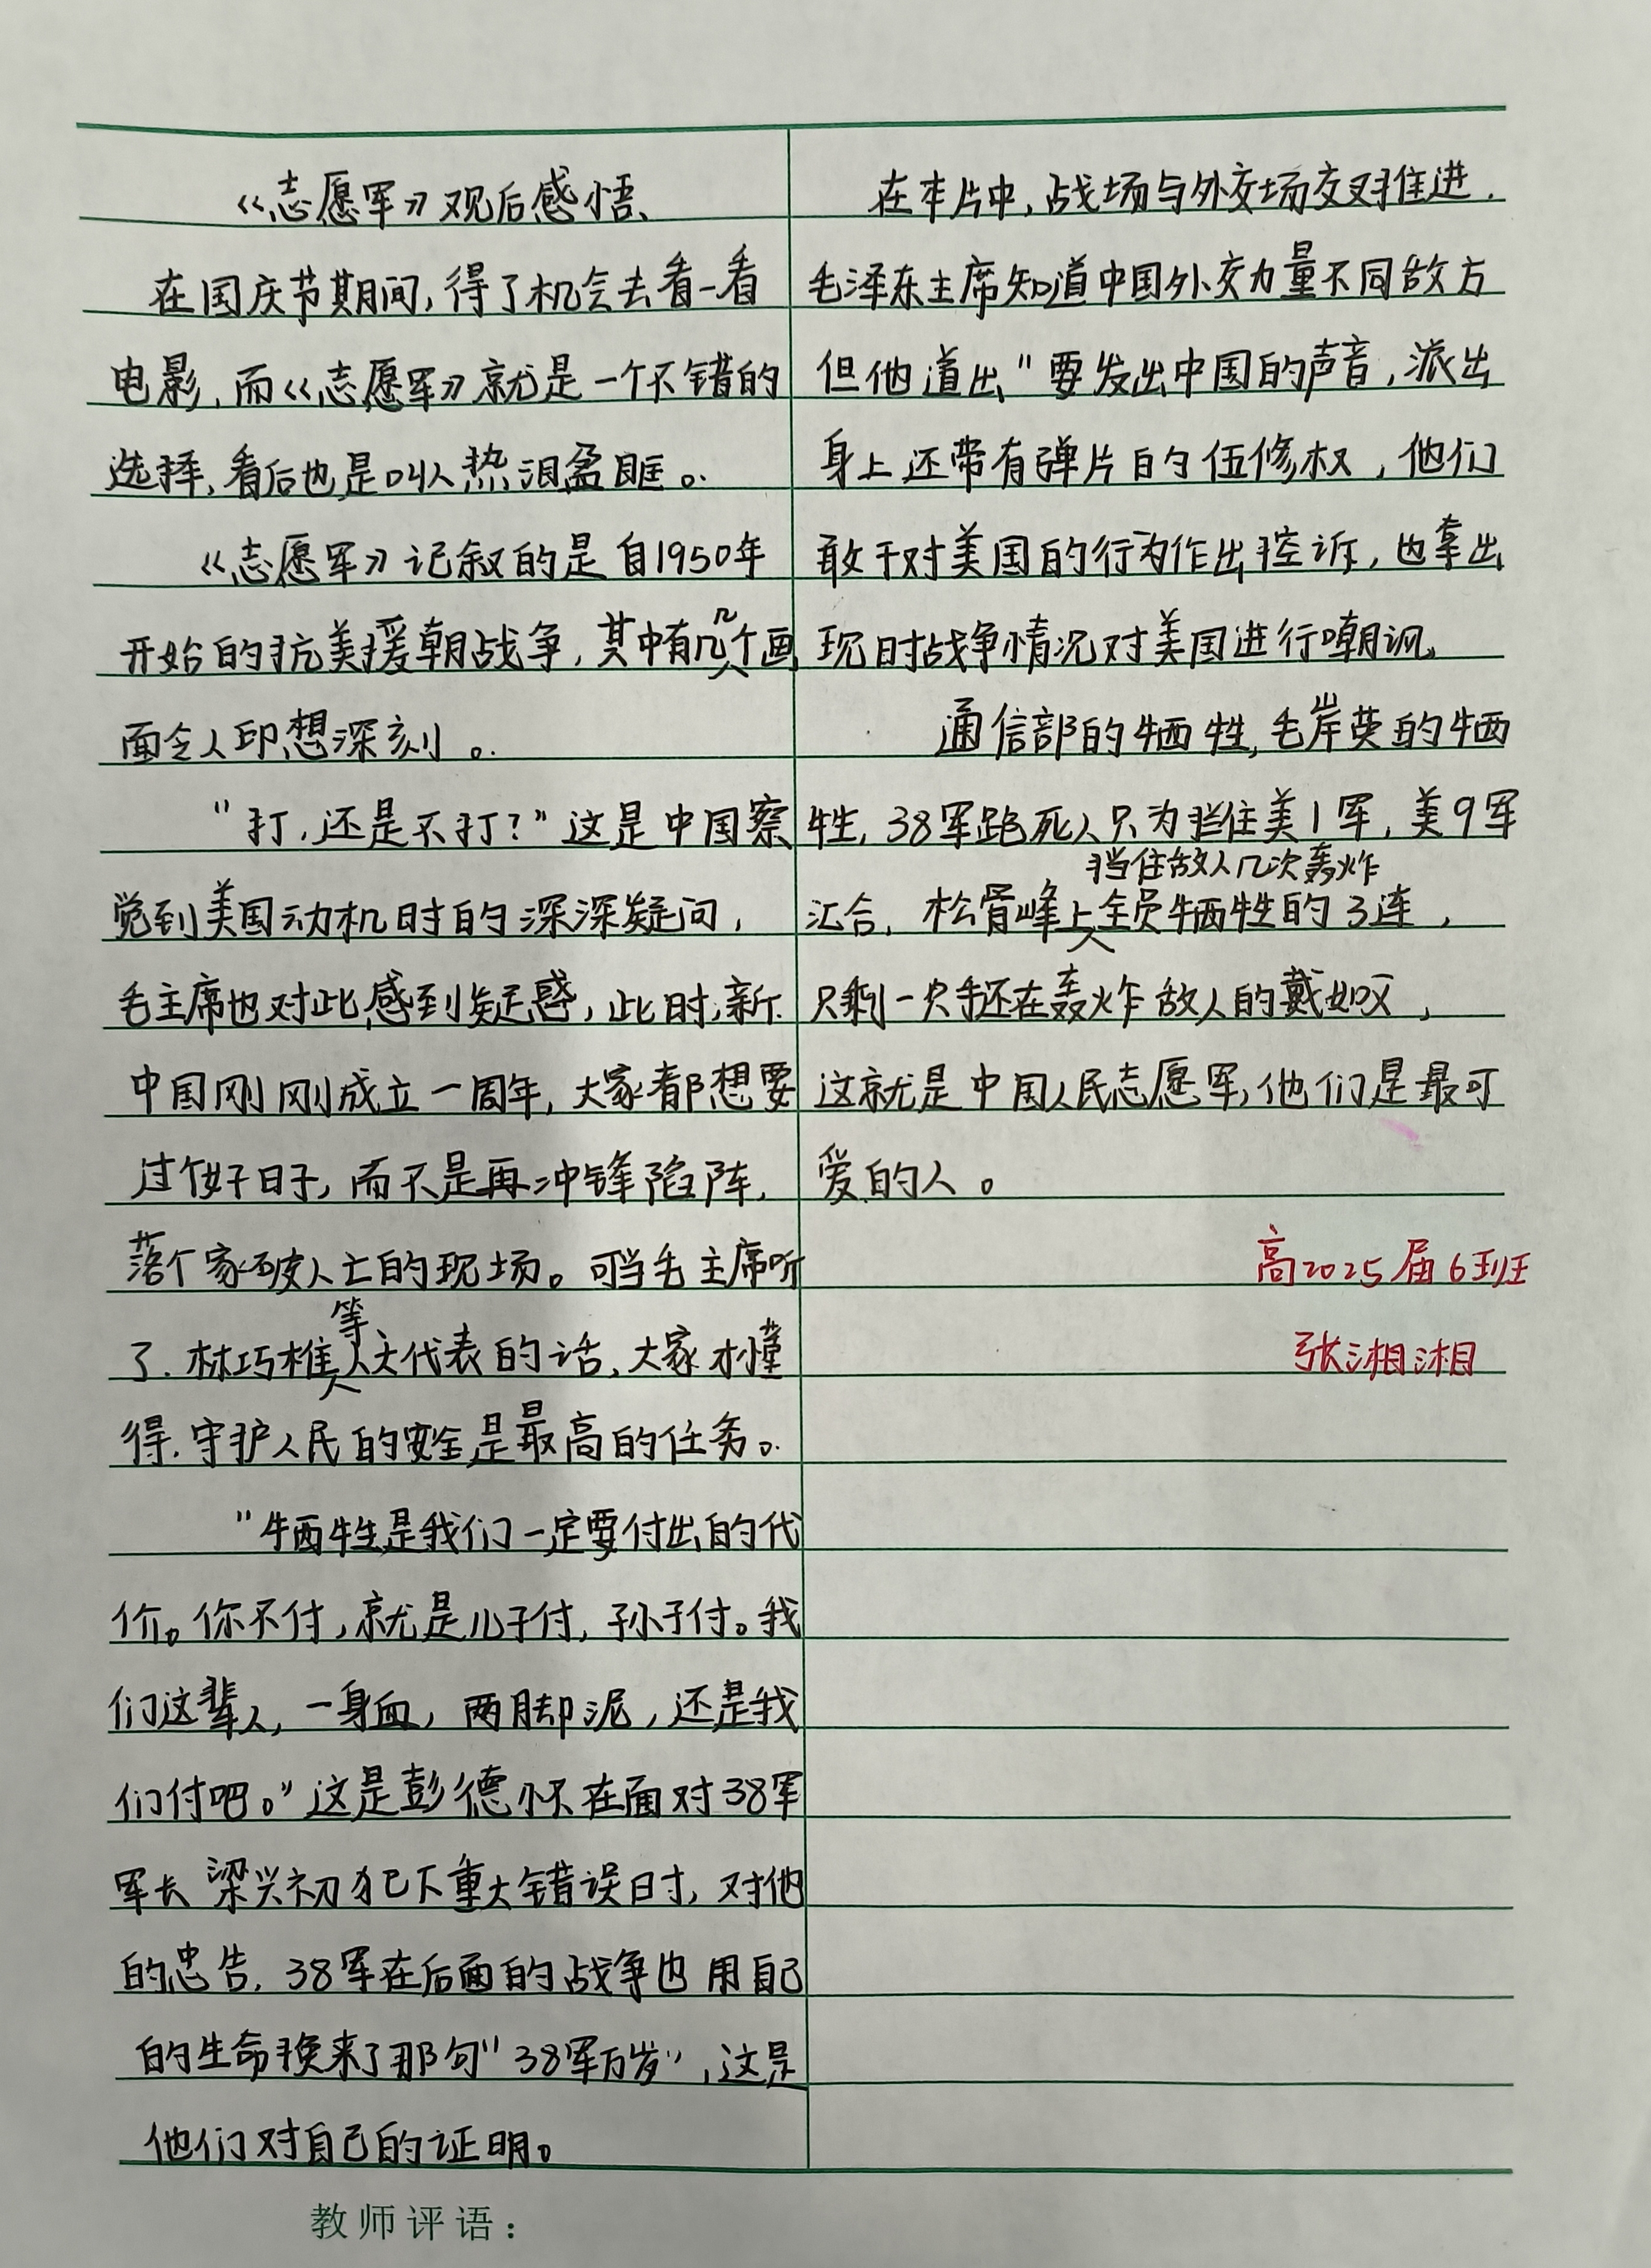 《志愿军》观后感悟
在国庆节期间，得了机会去看一看
电影，而《志愿军》就是一个不错的
选择，看后也是叫人热泪盈眶。
《志愿军》记叙的是自1950年
开始的抗美援朝战争，其中有几个画
面令人印想深刻。
"打，还是不打？"这是中国察
觉到美国动机时的深深疑问，
毛主席也对此感到疑惑，此时，新
中国刚刚成立一周年，大家都想要
过个好日子，而不是再冲锋陷阵，
落个家破人亡的现场。可当毛主席听
了林巧稚等人大代表的话，大家才懂
得，守护人民的安全是最高的任务。
"牺牲是我们一定要付出的代
价。你不付，就是儿子付，孙子付。我
们这辈人，一身血，两脚泥，还是我
们付吧。"这是彭德怀在面对38军
军长梁兴初犯下重大错误时，对他
的忠告，38军在后面的战争也用自己
的生命换来了那句"38军万岁"，这是
他们对自己的证明。
在本片中，战场与外交场交叉推进.
毛泽东主席知道中国外交力量不同敌方
但他道出"要发出中国的声音，派出
身上还带有弹片的伍修权，他们
敢于对美国的行为作出控诉，也拿出
现时战争情况对美国进行嘲讽。
通信部的牺牲，毛岸英的牺
牲，38军跑死人只为挡住美1军，美9军
汇合，松骨峰上挡住敌人几次轰炸全员牺牲的3连，
只剩一只手还在轰炸敌人的戴如义，
这就是中国人民志愿军，他们是最可
爱的人。
高2025届6班
张湘湘
教师评语：